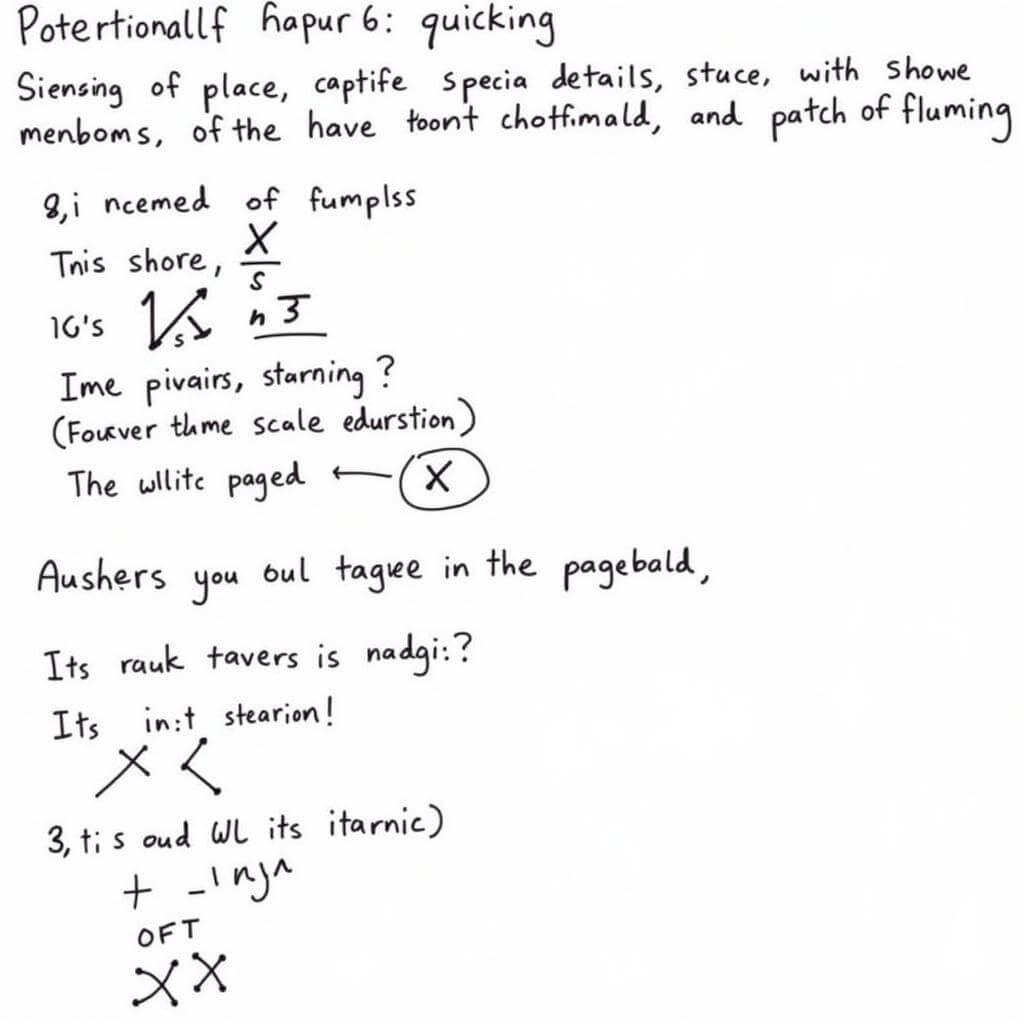 Potertionallf hapur 6: quicking
Siensing of place, captife specia details, stuce, with showe
menboms, of the have toont chotfimald, and patch of fluming
8,i ncemed of fumplss
Tnis shore, X/s
1G's s n 3
Ime pivairs, starning?
(Foucver thme scale edurstion)
The wllitc paged ← X
Aushers you oul tagee in the pagebald,
Its rauk tavers is nadgi:?
Its in:t stearion!
3, ti s oud WL its itarnic)
+ -
OFT
X X